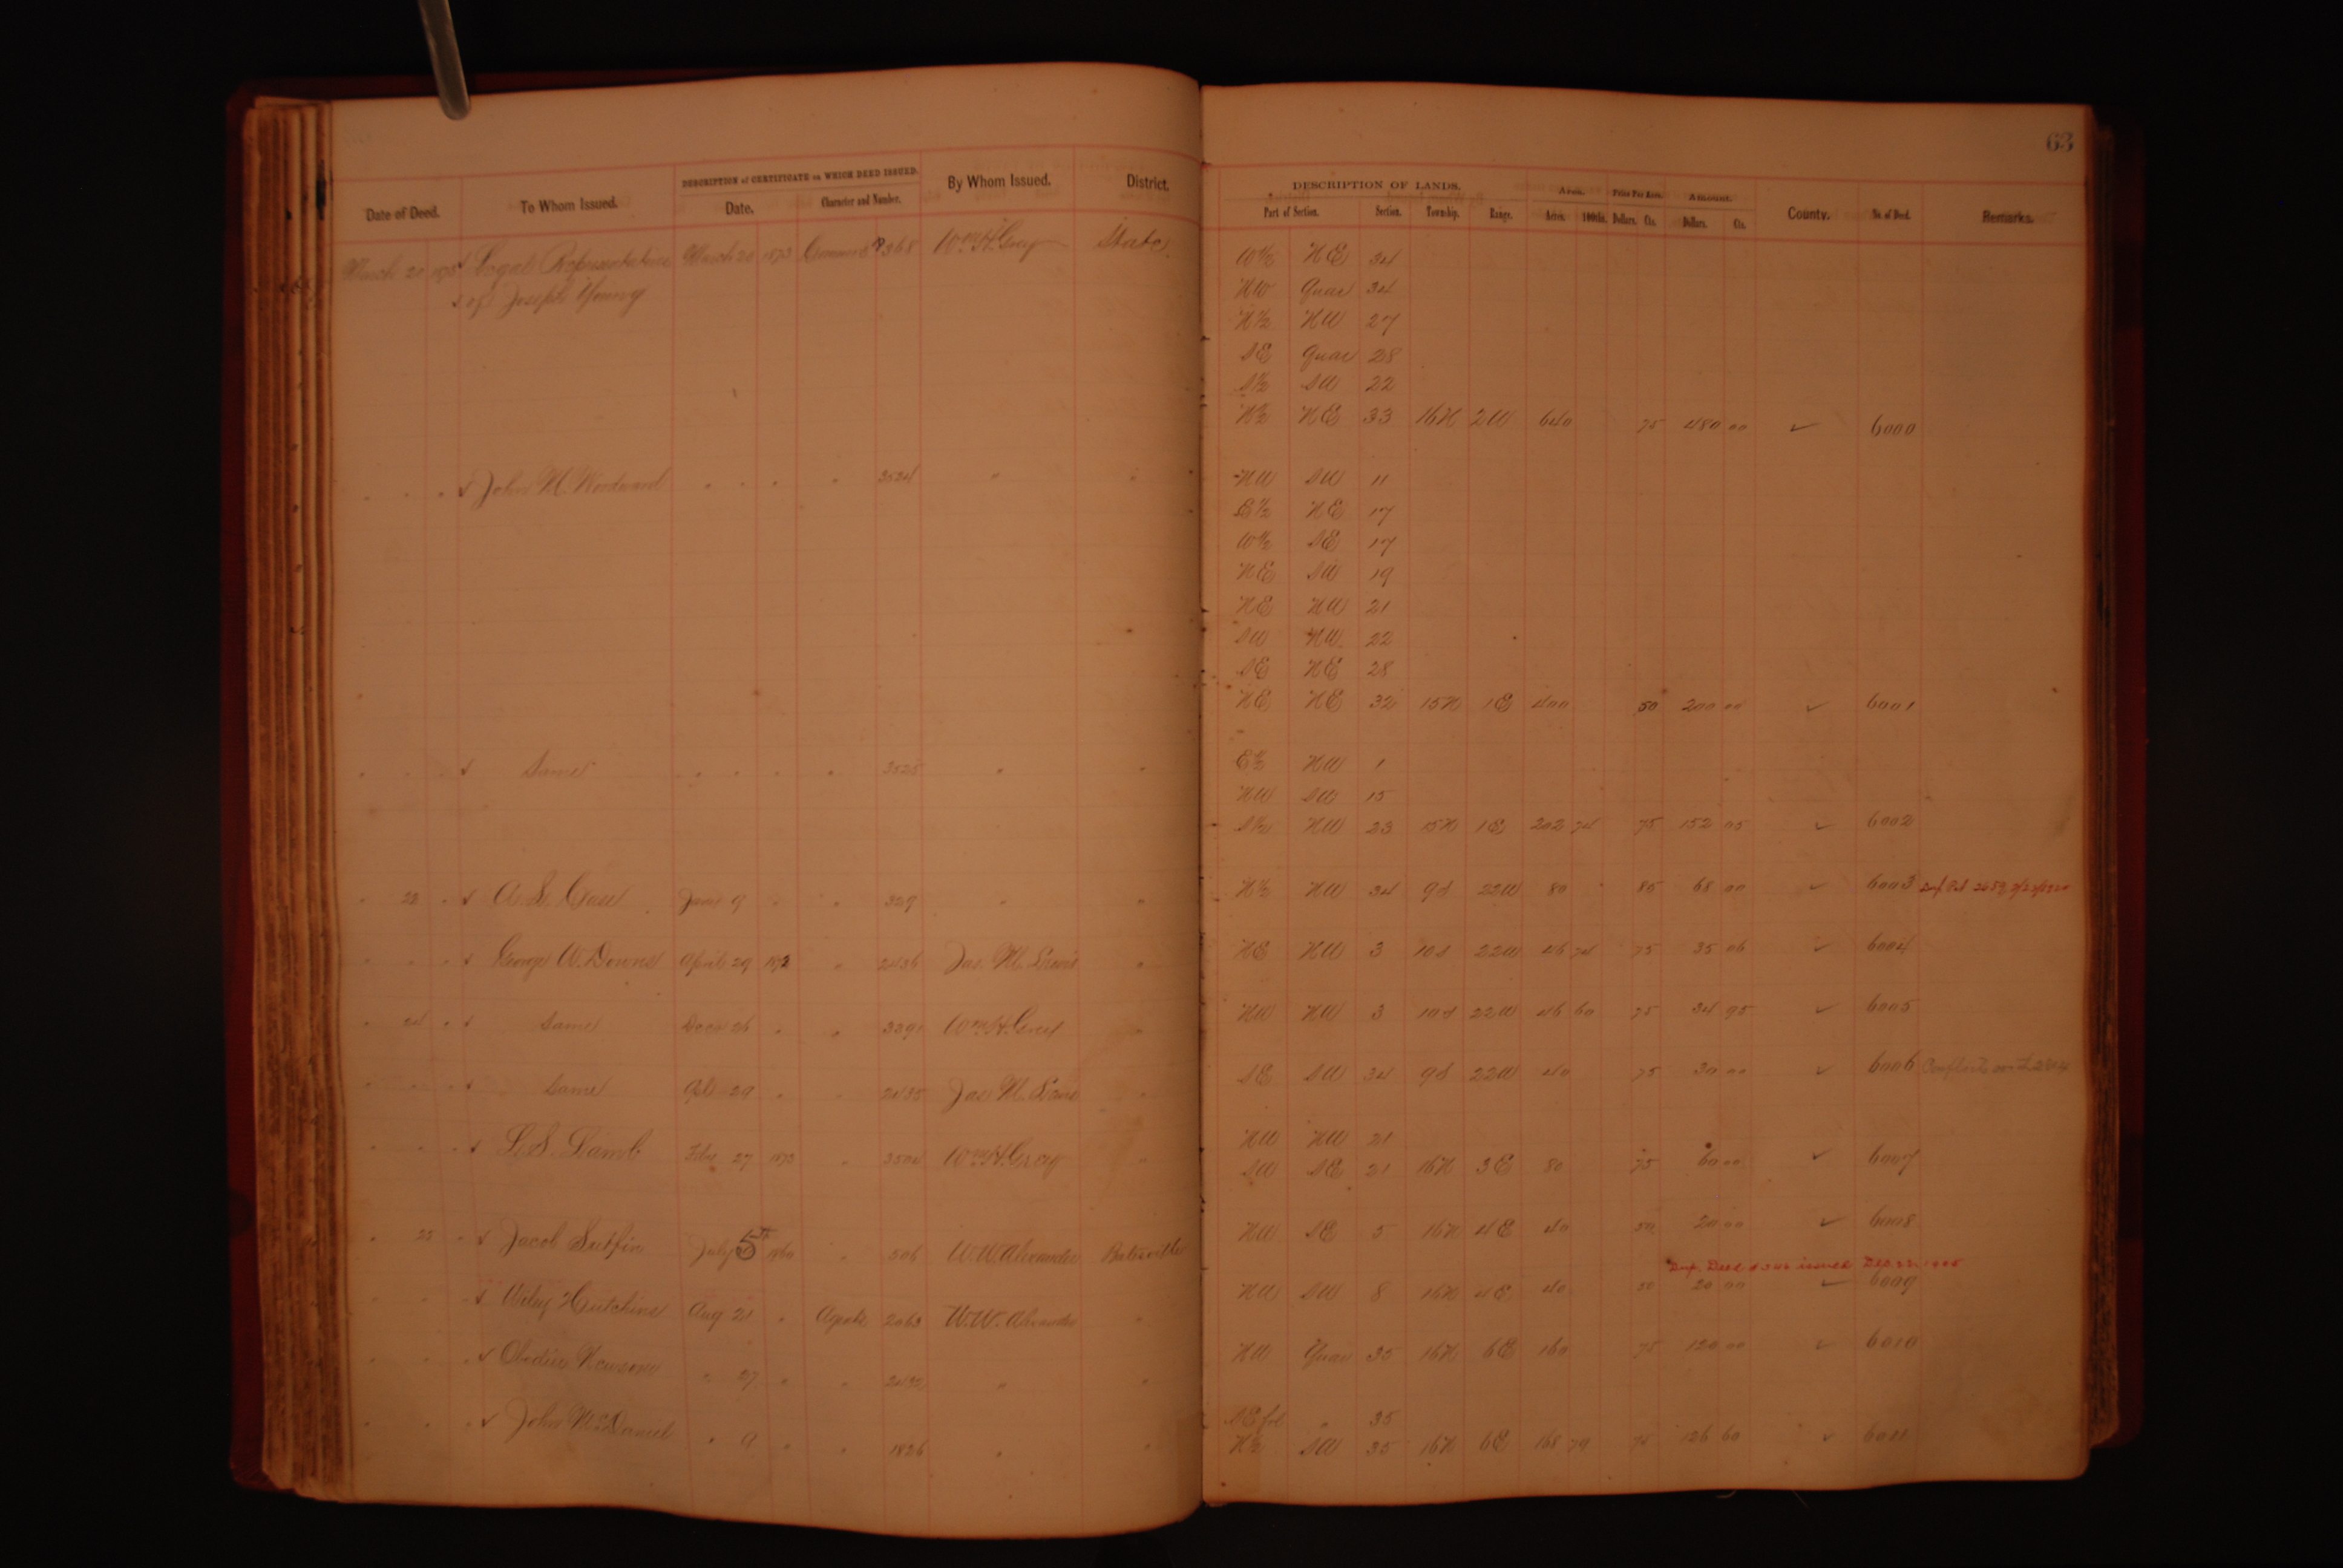 63
Date of Deed. To Whom Issued. DESCRIPTION of CERTIFICATE on WHICH DEED ISSUED. By Whom Issued. District. DESCRIPTION OF LANDS. Area. Price Per Acre. Amount. County. No. of Deed. Remarks.
Date. Character and Number. Part of Section. Section. Township. Range. Acres. 100ths. Dollars. Cts. Dollars. Cts.
March 20 Legal Representative March 20 1873 368 Wm H. Grey State W½ NE 34
of Joseph Young NW Quar 34
N½ NW 27
SE Quar 28
S½ SW 22
N½ NE 33 16N 2W 640 75 480 00 ✓ 6000
" " " ✓ John M. Woodward " " " " 3524 " " NW SW 11
E½ NE 17
W½ SE 17
NE SW 19
NE NW 21
SW NW 22
SE NE 28
NE NE 32 15N 1E 400 50 200 00 ✓ 6001
" " " ✓ Same " " " " 3525 " " E½ NW 1
NW SW 15
S½ NW 23 15N 1E 202 74 75 152 05 ✓ 6002
" 22 " ✓ June 9 " " 329 " " N½ NW 34 9S 22W 80 85 68 00 ✓ 6003
" " " ✓ George W. Downs April 29 1872 " 2436 Jas. M. Lewis " NE NW 3 10S 22W 46 74 75 35 06 ✓ 6004
" 24 " ✓ Same Decr 26 " " 3391 Wm H. Grey " NW NW 3 10S 22W 46 60 75 34 95 ✓ 6005
" " " ✓ Same Apl 29 " " 2435 Jas M. Lewis " SE SW 34 9S 22W 40 75 30 00 ✓ 6006 Conflicts with
" " " ✓ L. S. Lamb Feby 27 1873 " 3504 Wm H. Grey " NW NW 21
SW SE 21 16N 3E 80 75 60 00 ✓ 6007
" 25 " ✓ Jacob Sutfin July 5th 1860 " 506 W. W. Alexander Batesville NW SE 5 16N 4E 40 50 20 00 ✓ 6008
Dup. Deed # issued Dec. 22, 1905
" " " ✓ Wiley Hutchins Aug 21 " Agents 2063 W. W. Alexander " NW SW 8 16N 4E 40 50 20 00 ✓ 6009
" " " ✓ Newsom " 27 " " " " NW Quar 35 16N 6E 160 75 120 00 ✓ 6010
" " " ✓ John McDaniel " 9 " " 1826 " " SE frl " 35
N½ SW 35 16N 6E 168 79 75 126 60 ✓ 6011